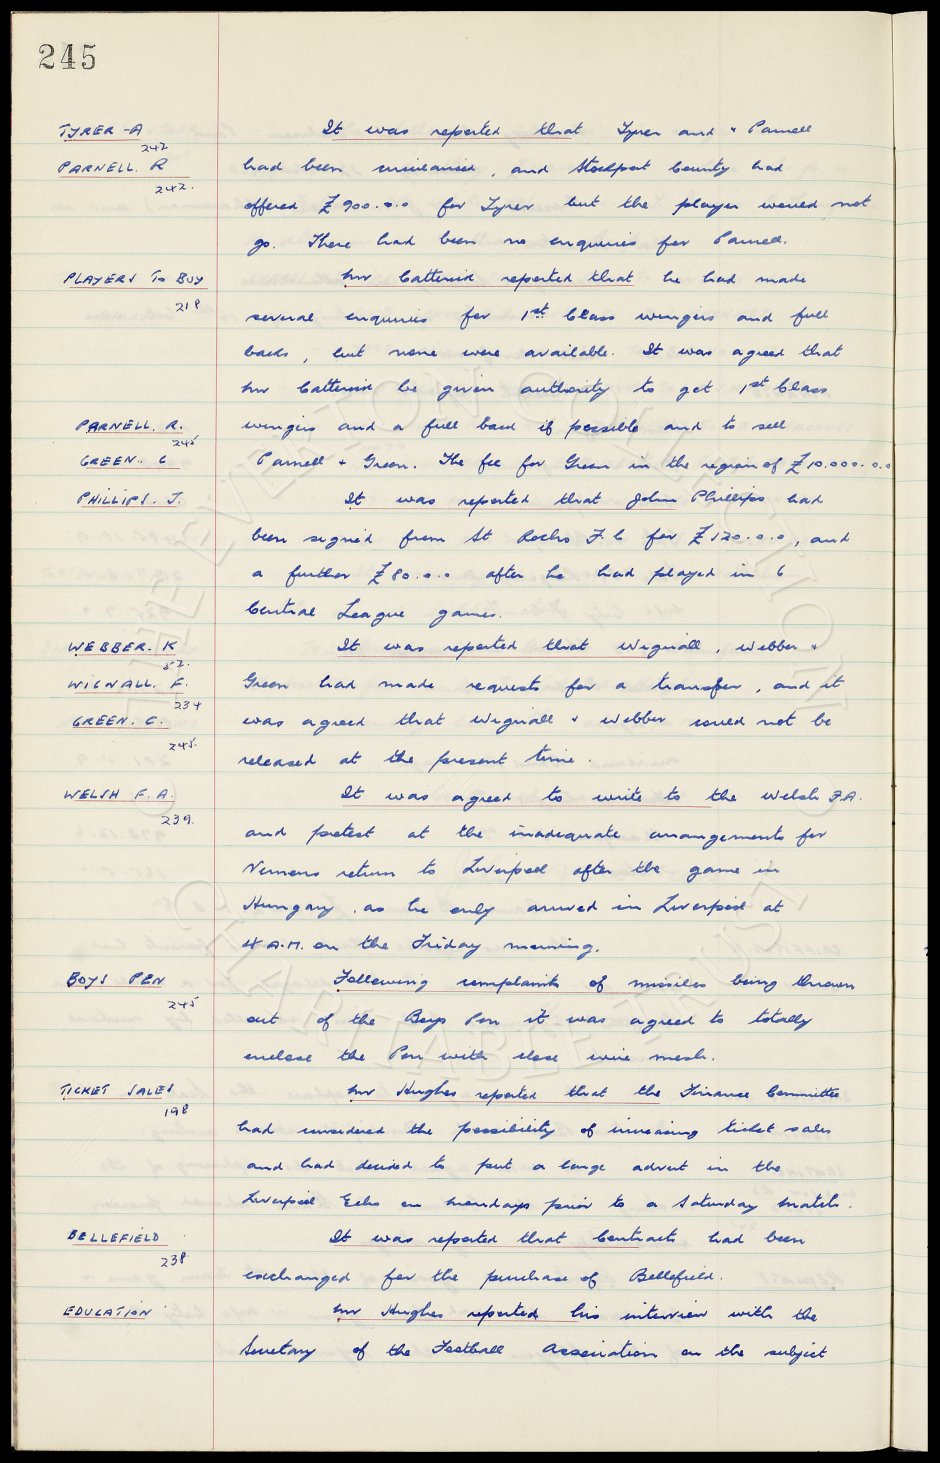 245
TYRER -A It was reported that Tyrer and + Parnell
242
PARNELL. R had been circularised, and Stockport County had
242.
offered £900.0.0 for Tyrer but the player would not
go. There had been no enquiries for Parnell.
PLAYERS To BUY Mr Catterick reported that he had made
218
several enquiries for 1st Class wingers and full
backs, but none were available. It was agreed that
Mr Catterick be given authority to get 1st Class
PARNELL. R. wingers and a full back if possible and to sell
245
GREEN. C Parnell + Green. The fee for Green in the region of £10.000.0.0
PHILLIPS. J. It was reported that John Phillips had
been signed from St Rochs F.C for £120.0.0, and
a further £80.0.0 after he had played in 6
Central League games.
WEBBER. K It was reported that Wignall, Webber +
52.
WIGNALL. F. Green had made requests for a transfer, and it
234
GREEN. C. was agreed that Wignall + Webber could not be
245.
released at the present time.
WELSH F.A. It was agreed to write to the Welsh F.A.
239.
and protest at the inadequate arrangements for
Vernons return to Liverpool after the game in
Hungary, as he only arrived in Liverpool at
4 A.M. on the Friday morning.
BOYS PEN Following complaints of missiles being thrown
245
out of the Boys Pen it was agreed to totally
enclose the Pen with close wire mesh.
TICKET SALES Mr Hughes reported that the Finance Committee
198
had considered the possibility of increasing ticket sales
and had decided to put a large advert in the
Liverpool Echo on Mondays prior to a Saturday match.
BELLEFIELD It was reported that Contracts had been
238
exchanged for the purchase of Bellefield.
EDUCATION Mr Hughes reported his interview with the
Secretary of the Football Association on the subject
THE EVERTON COLLECTION
CHARITABLE TRUST